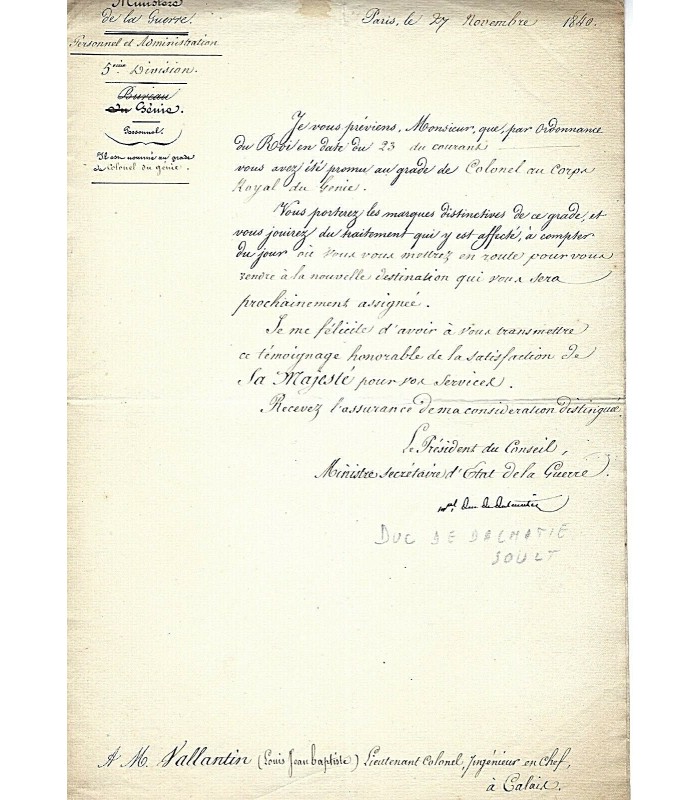 Ministère
de la Guerre.
Personnel et Administration
5ème Division.
Bureau
du Génie.
Personnel.
Il est nommé au grade
de Colonel du génie.
Paris, le 27 Novembre 1840.
Je vous préviens, Monsieur, que, par Ordonnance
du Roi en date du 23 du courant
vous avez été promu au grade de Colonel au Corps
Royal du Génie.
Vous porterez les marques distinctives de ce grade, et
vous jouirez du traitement qui y est affecté, à compter
du jour où vous vous mettrez en route pour vous
rendre à la nouvelle destination qui vous sera
prochainement assignée.
Je me félicite d'avoir à vous transmettre
ce témoignage honorable de la satisfaction de
Sa Majesté pour vos services.
Recevez l'assurance de ma considération distinguée.
Le Président du Conseil,
Ministre Secrétaire d'Etat de la Guerre.
Mal Duc de Dalmatie
DUC DE DALMATIE
SOULT
A M. Vallantin (Louis Jean baptiste) Lieutenant Colonel, Ingénieur en Chef,
à Calais.